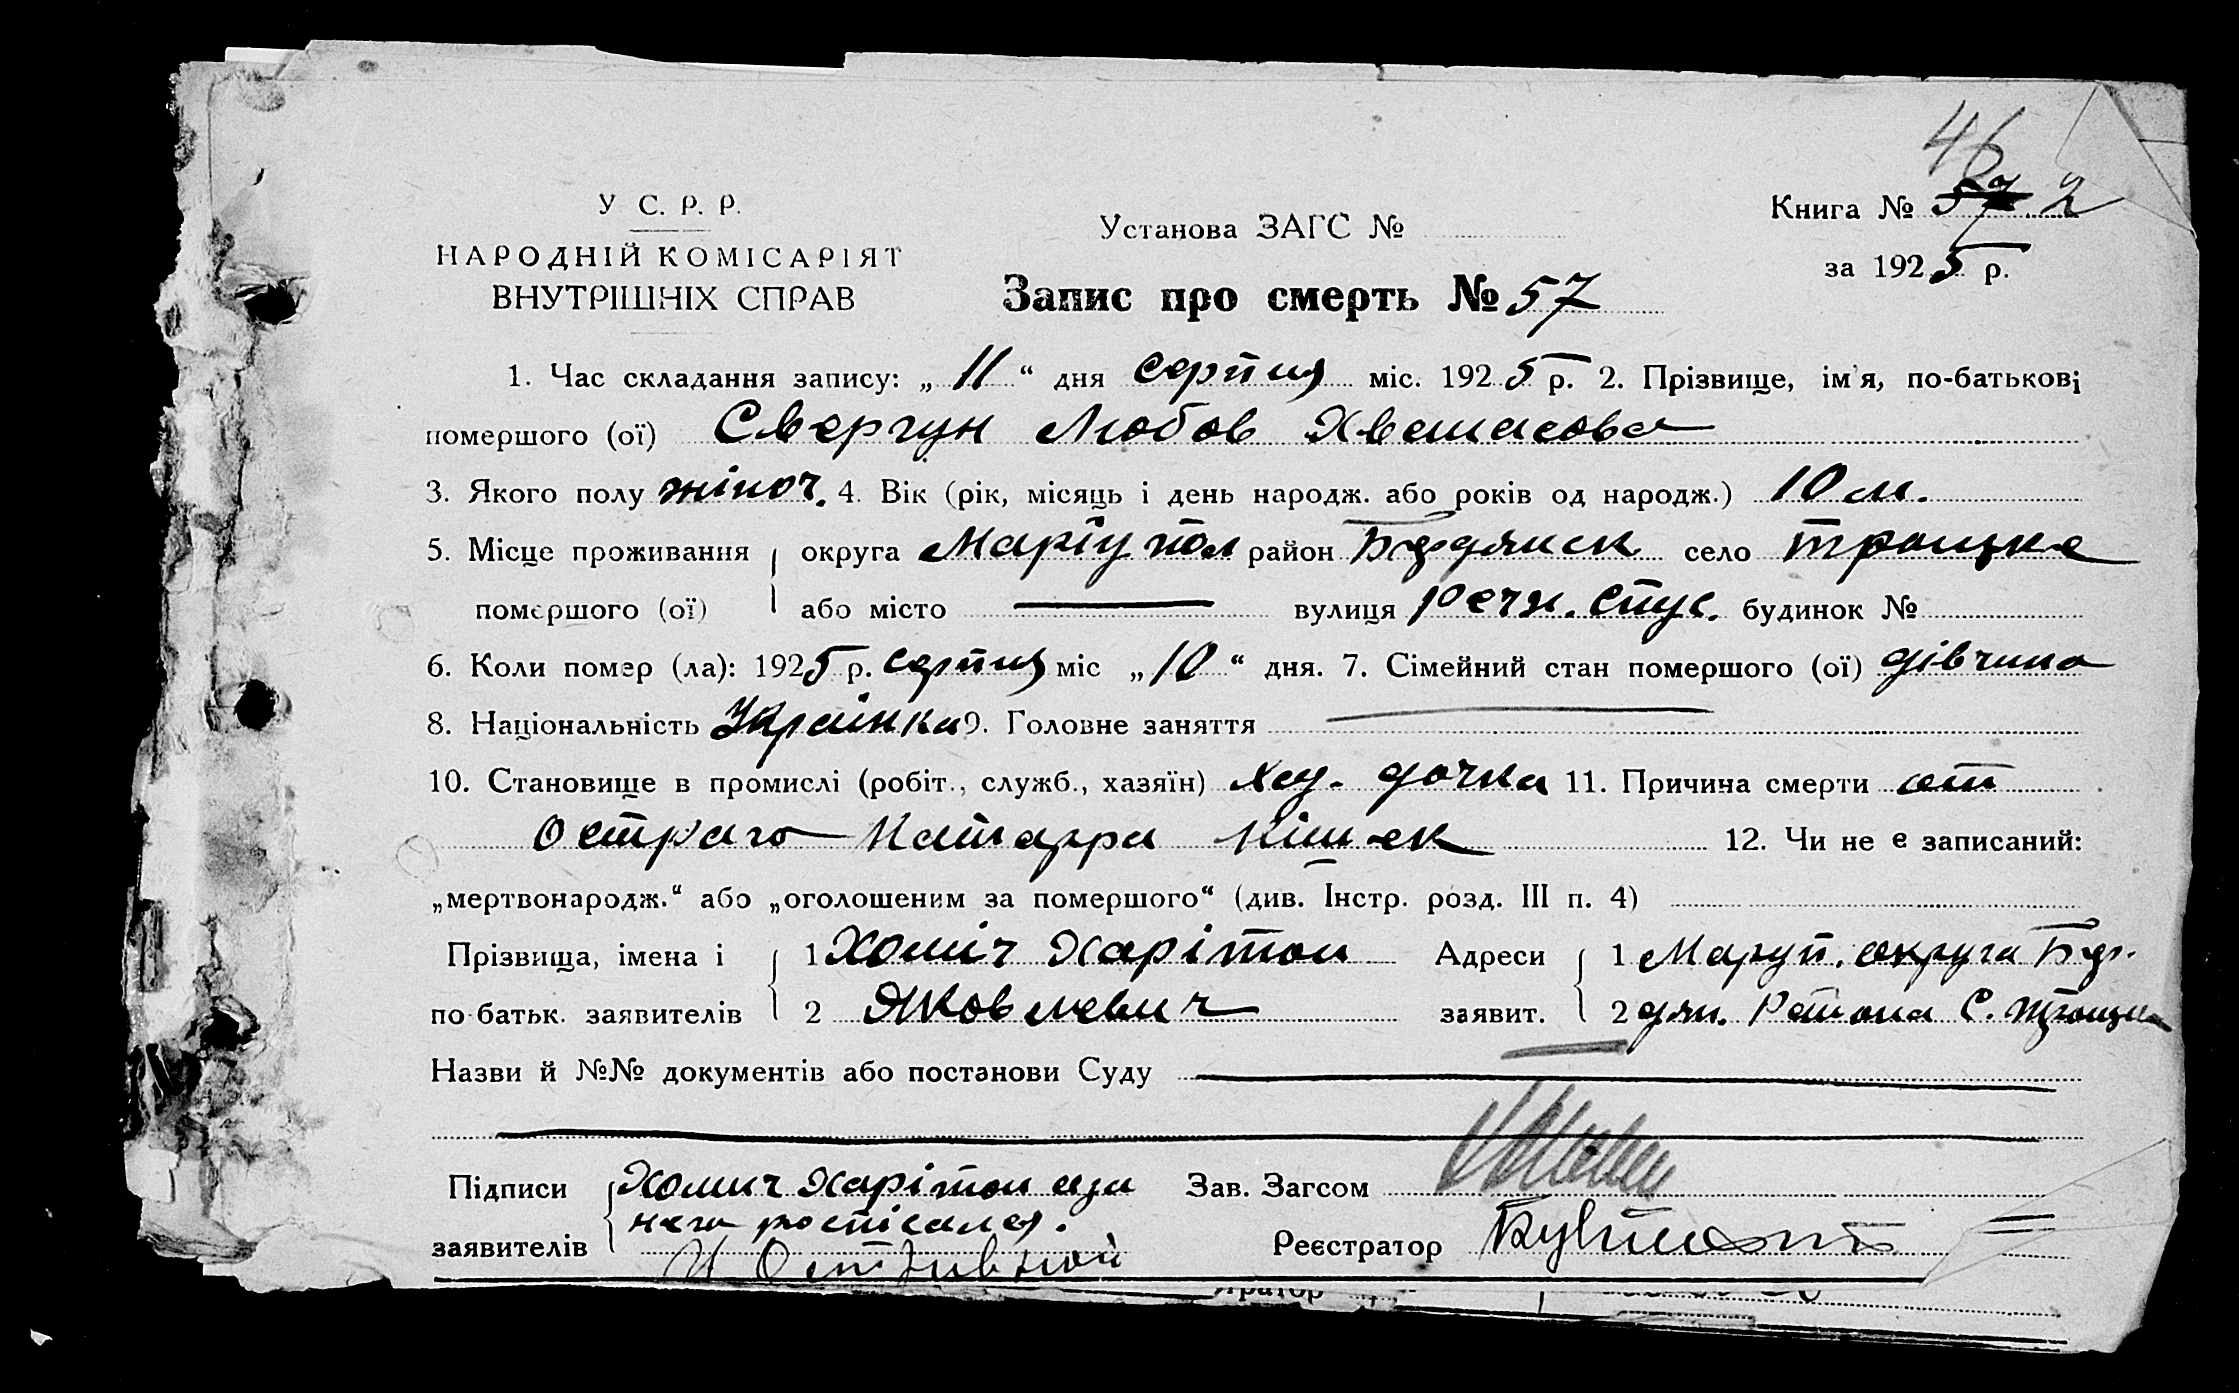 46
У С. Р. Р.
НАРОДНІЙ КОМІСАРІЯТ
ВНУТРІШНІХ СПРАВ
Установа ЗАГС №
Книга № 57 2
за 1925 р.
Запис про смерть № 57
1. Час складання запису: „ 11 “ дня серпня міс. 1925 р. 2. Прізвище, ім'я, по-батькові
помершого (ої) Свергун Любов Хвемасова
3. Якого полу жіноч. 4. Вік (рік, місяць і день народж. або років од народж.) 10 м.
5. Місце проживання округа Маріупол район Бердянск село Троицке
помершого (ої) або місто вулиця будинок №
6. Коли помер (ла): 1925 р. серпня міс „ 10 “ дня. 7. Сімейний стан помершого (ої) дівчина
8. Національність Украінка 9. Головне заняття
10. Становище в промислі (робіт., служб., хазяїн) хаз. дочка 11. Причина смерти от
острого катарра кішек 12. Чи не є записаний:
„мертвонародж.“ або „оголошеним за помершого“ (див. Інстр. розд. III п. 4)
Прізвища, імена і 1 Хоміч Харітон Адреси 1 Маруп. округа Бер-
по батьк. заявителів 2 Яковлевич заявит. 2 дян. Раіона С. Троицке
Назви й №№ документів або постанови Суду
Підписи Хомич Харітон а за Зав. Загсом
него ростісался.
заявителів И Реєстратор